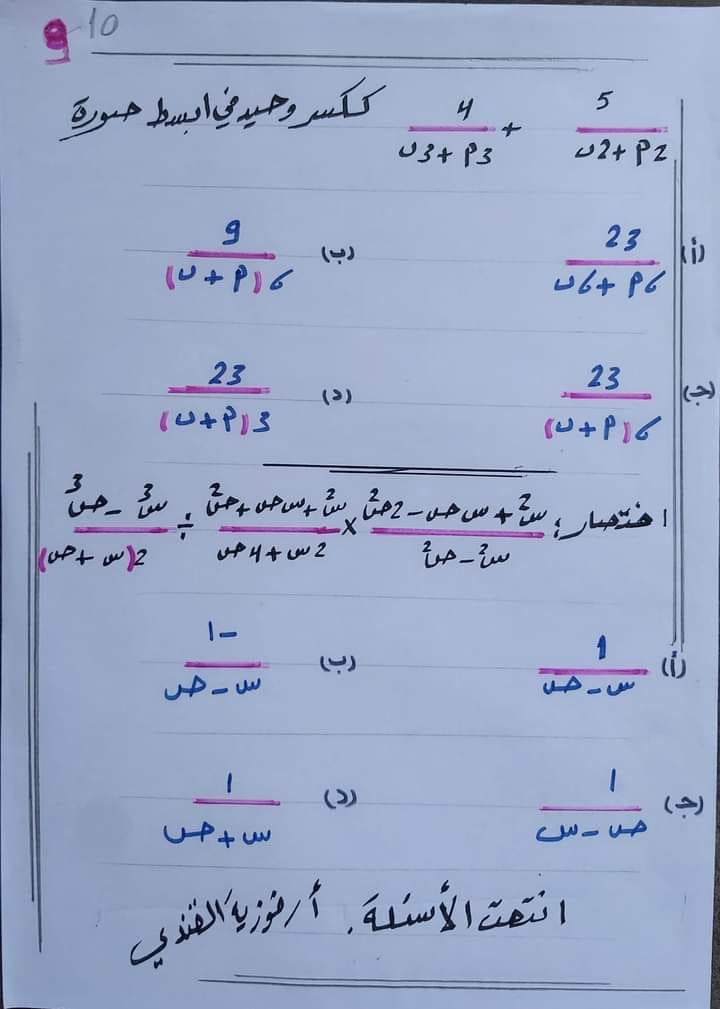 9 10
5/(2م + 2ن) + 4/(3م + 3ن) ككسر وحيد في ابسط صورة
(أ) 23/(6م + 6ن) (ب) 9/(6(م + ن))
(ج) 23/(6(م + ن)) (د) 23/(3(م + ن))
اختصار : (س² + س ص - 2ص²)/(س² - ص²) × (س² + س ص + ص²)/(2س + 4ص) ÷ (س³ - ص³)/(2(س + ص))
(أ) 1/(س - ص) (ب) -1/(س - ص)
(ج) 1/(ص - س) (د) 1/(س + ص)
انتهت الأسئلة. أ/فوزية